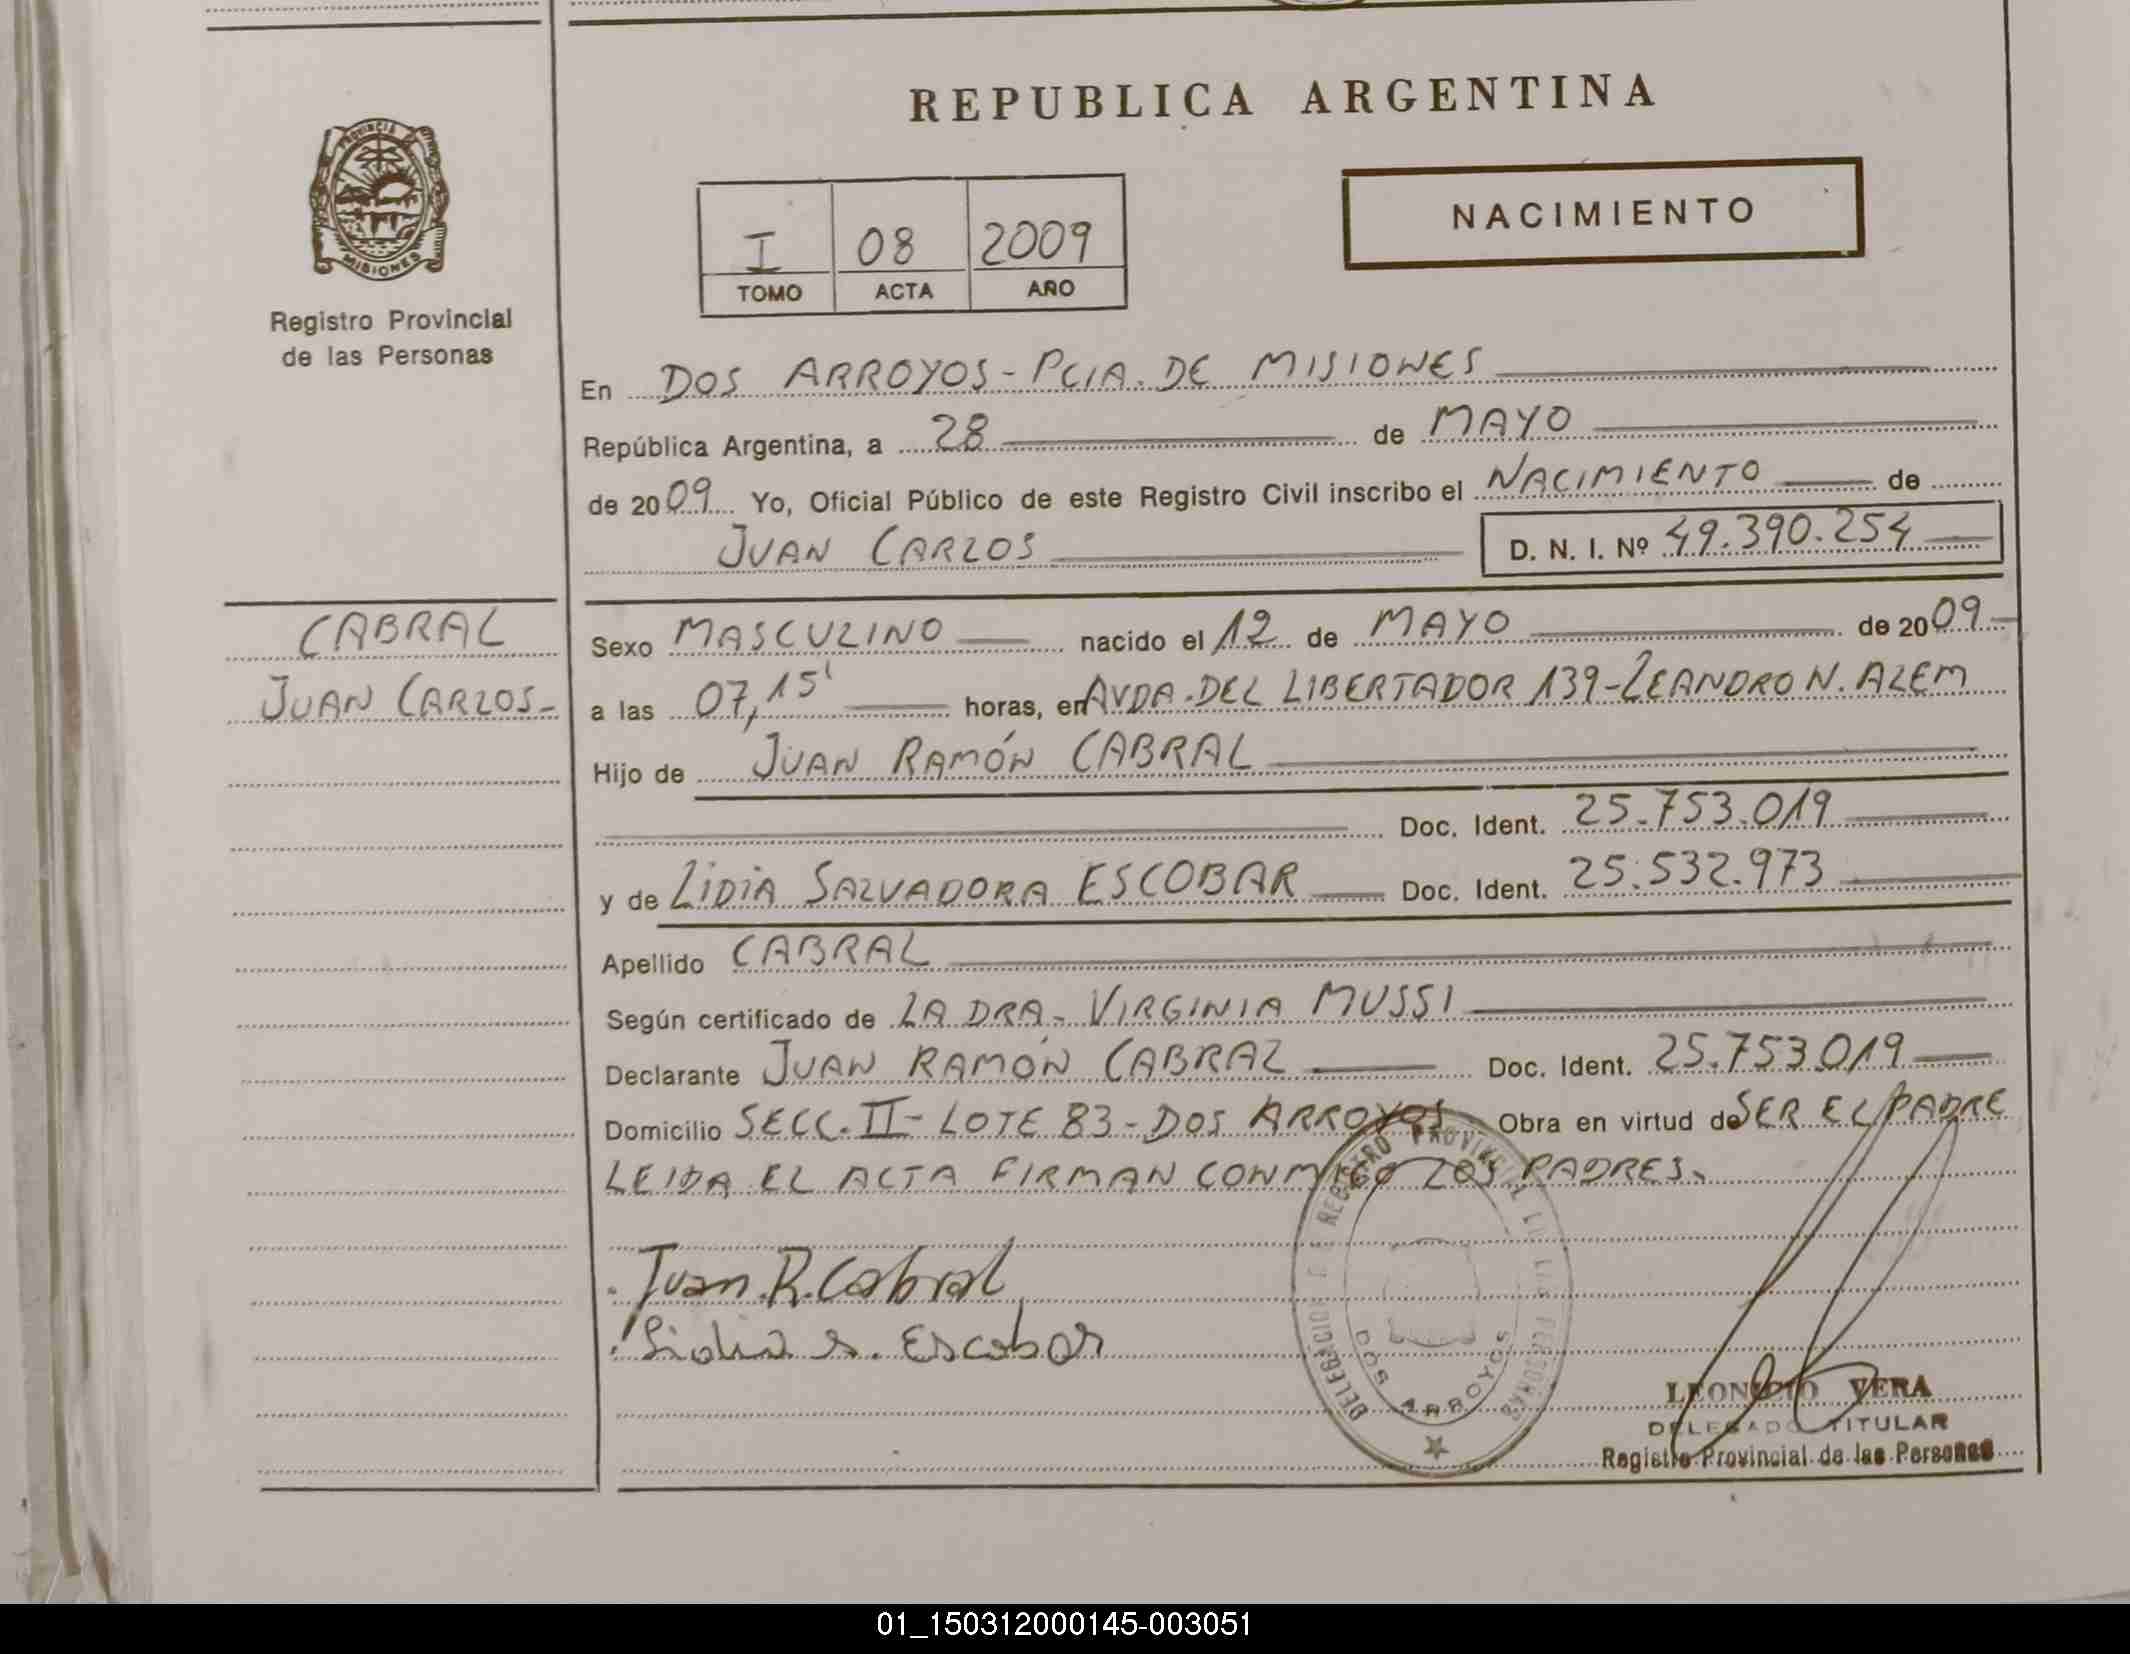 REPUBLICA ARGENTINA
PROVINCIA DE
MISIONES
Registro Provincial
de las Personas
NACIMIENTO
I 08 2009
TOMO ACTA AÑO
En DOS ARROYOS - PCIA. DE MISIONES
República Argentina, a 28 de MAYO
de 2009 Yo, Oficial Público de este Registro Civil inscribo el NACIMIENTO de
JUAN CARLOS D. N. I. Nº 49.390.254
CABRAL
JUAN CARLOS-
Sexo MASCULINO nacido el 12 de MAYO de 2009
a las 07,15' horas, en AVDA. DEL LIBERTADOR 139 - LEANDRO N. ALEM
Hijo de JUAN RAMÓN CABRAL
Doc. Ident. 25.753.019
y de LIDIA SALVADORA ESCOBAR Doc. Ident. 25.532.973
Apellido CABRAL
Según certificado de LA DRA. VIRGINIA MUSSI
Declarante JUAN RAMÓN CABRAL Doc. Ident. 25.753.019
Domicilio SECC. II - LOTE 83 - DOS ARROYOS Obra en virtud de SER EL PADRE
LEIDA EL ACTA FIRMAN CONMIGO LOS PADRES.
Juan.R.Cabral
Lidia s. Escobar
DELEGACION REGISTRO PROVINCIAL DE LAS PERSONAS
DOS ARROYOS
LEONICIO VERA
DELEGADO TITULAR
Registro Provincial de las Personas
01_150312000145-003051